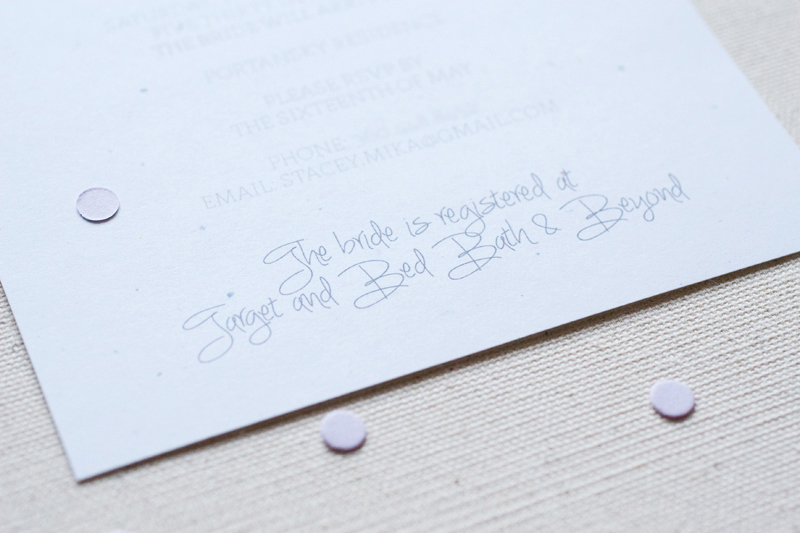 THE BRIDE WILL
PORTANSKY RESIDENCE
PLEASE RSVP BY
THE SIXTEENTH OF MAY
PHONE:
EMAIL: STACEY.MIKA@GMAIL.COM
The bride is registered at
Target and Bed Bath & Beyond